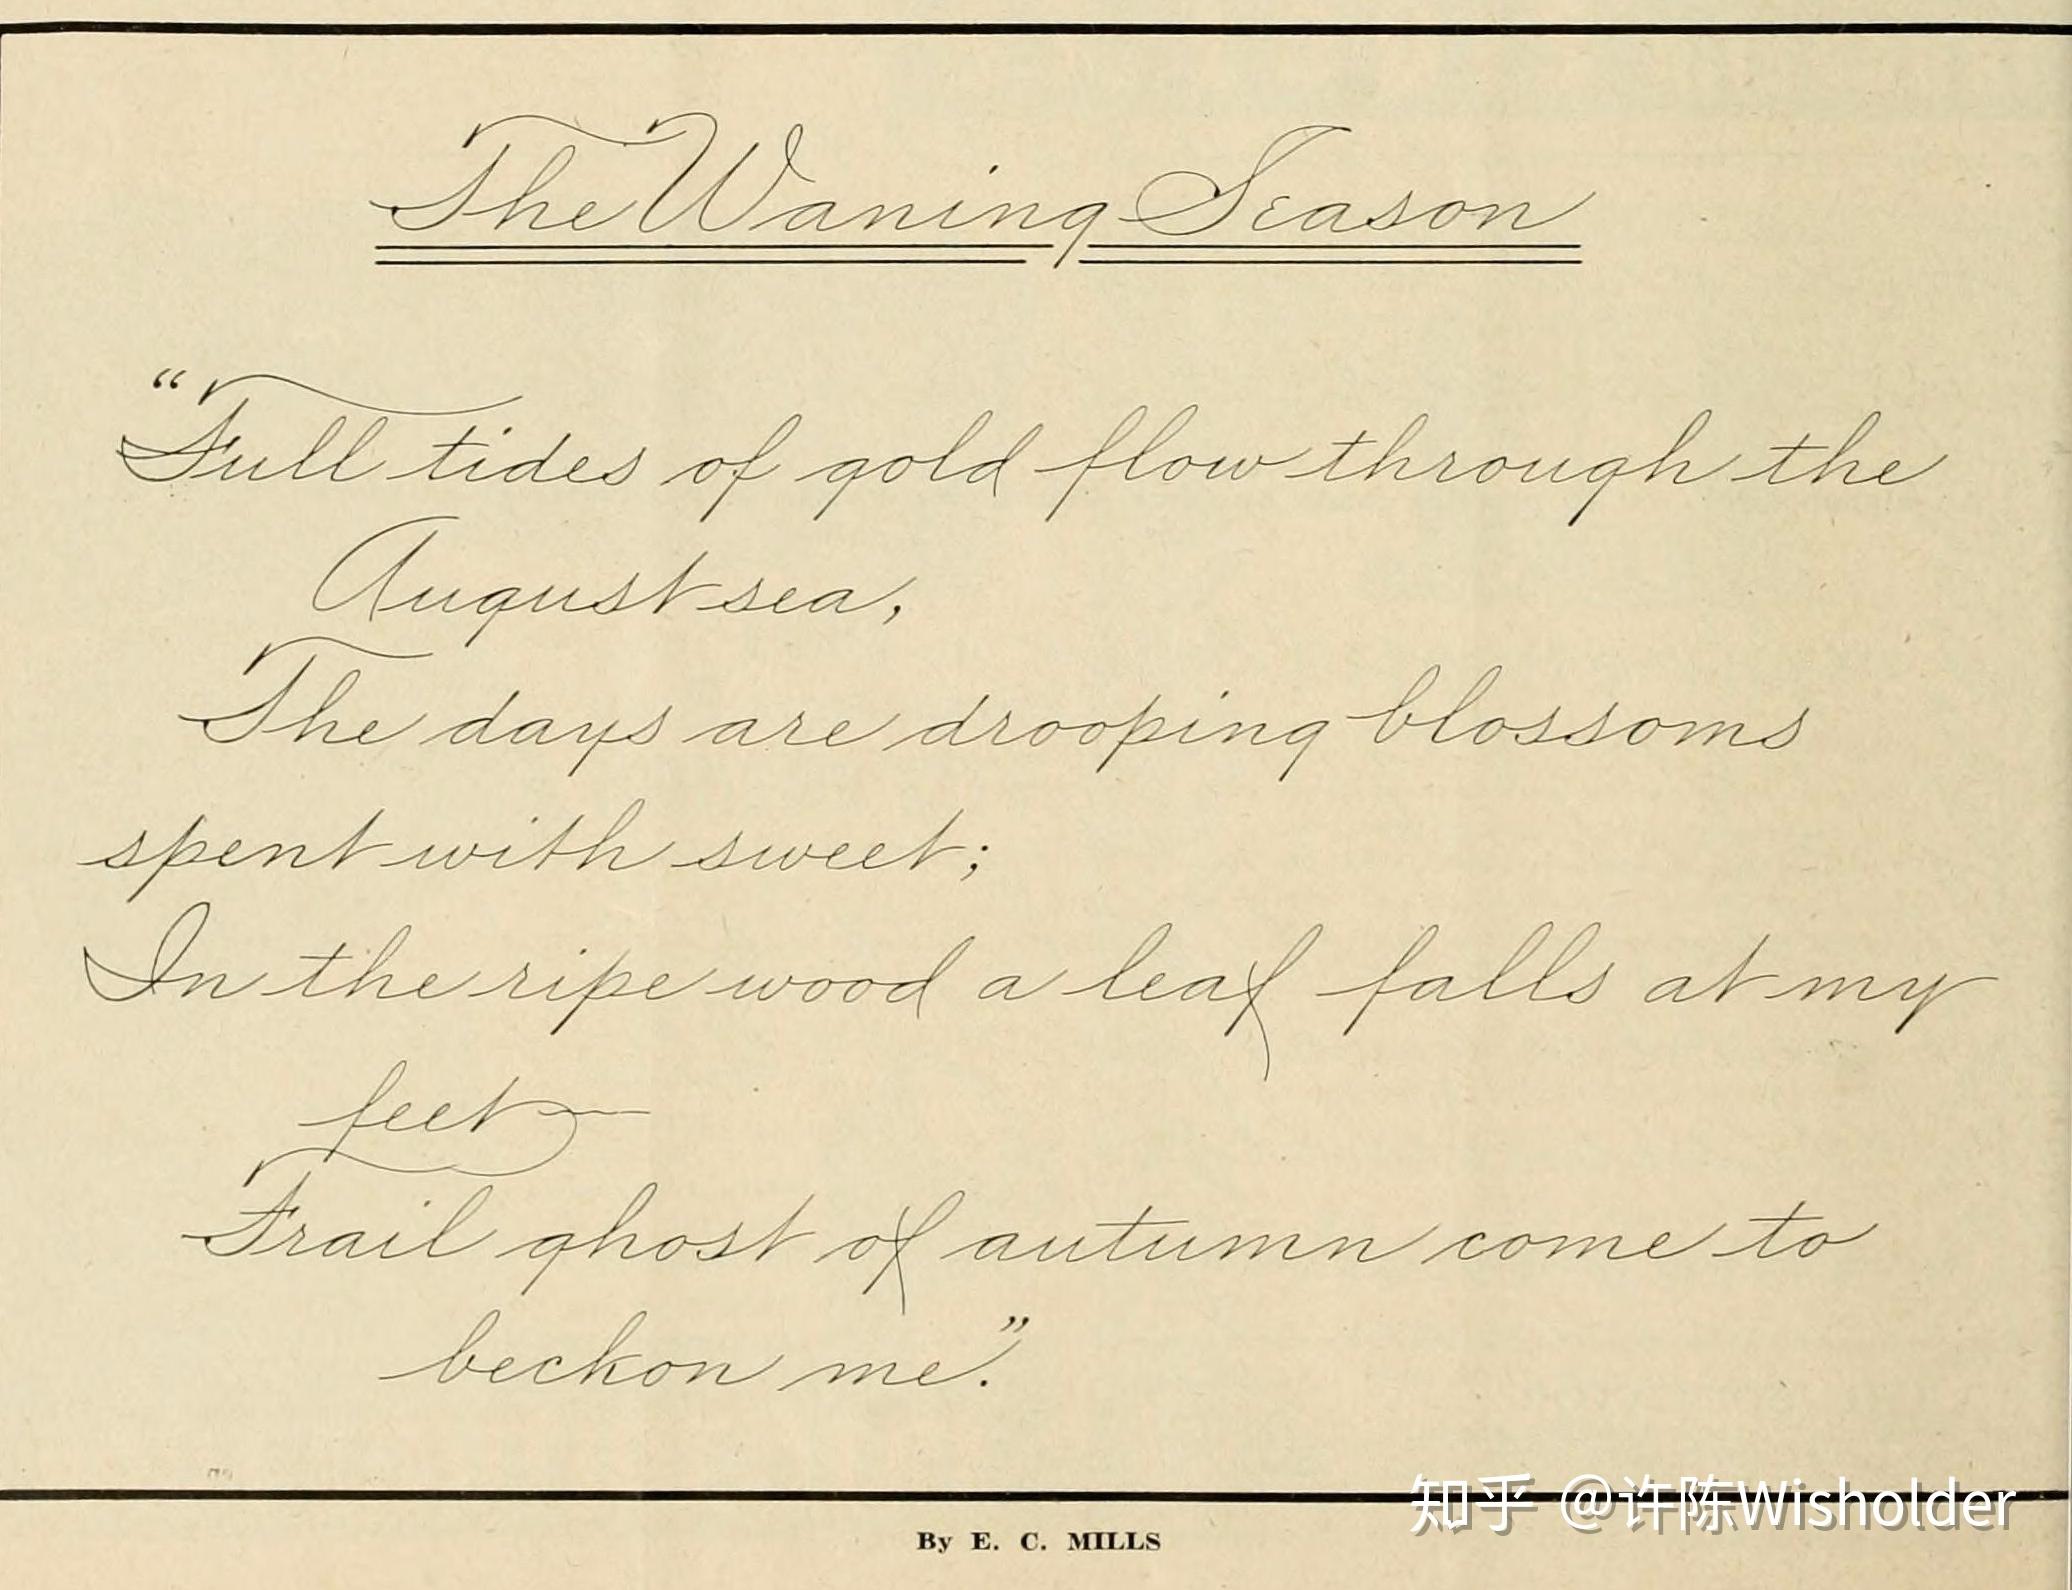 The Waning Season
“Full tides of gold flow through the
August sea,
The days are drooping blossoms
spent with sweet;
In the ripe wood a leaf falls at my
feet—
Frail ghost of autumn come to
beckon me.”
知乎 @许陈Wisholder
By E. C. MILLS